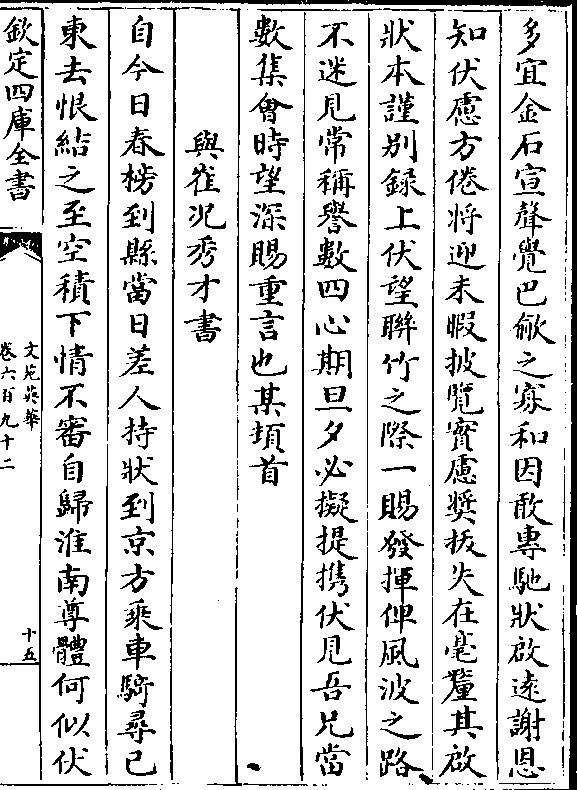 多宜金石宣聲覺巴歈之寡和因敢專馳狀啟遠謝恩
知伏慮方倦將迎未暇披覽實慮奬拔失在毫釐其啟
狀本謹别録上伏望聨竹之際一賜發揮伸風波之路
不迷見常稱譽數四心期旦夕必擬提攜伏見吾兄當
數集㑹時望深賜重言也某頓首
與崔况秀才書
自今日春榜到縣當日差人持狀到京方乘車騎尋已
東去恨結之至空積下情不審自歸淮南尊體何似伏
欽定四庫全書
文苑英華
卷六百九十二
十五